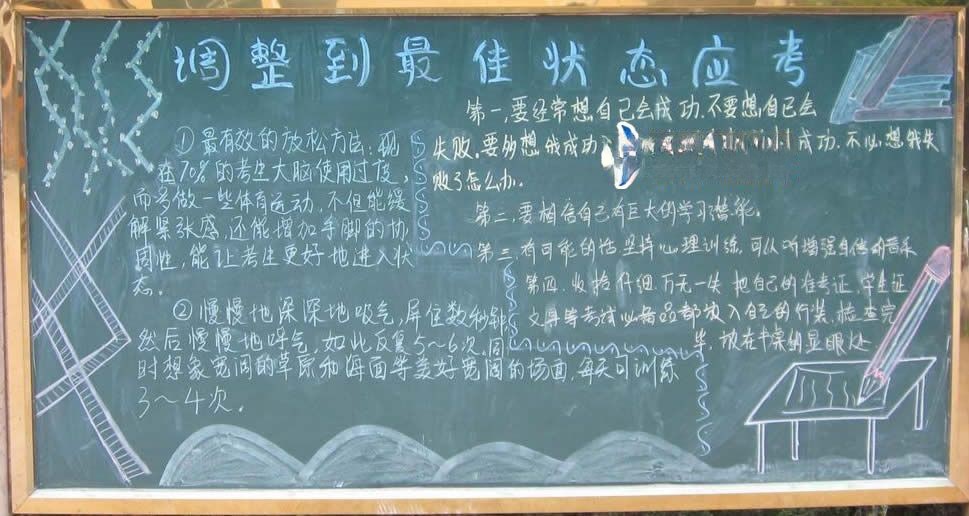 调整到最佳状态应考
①最有效的放松方法:现
在70%的考生大脑使用过度,
而多做一些体育运动,不但能缓
解紧张感,还能增加手脚的协
调性,能让考生更好地进入状
态。
②慢慢地深深地吸气,屏住数秒钟
然后慢慢地呼气,如此反复5~6次,同
时想象宽阔的草原和海面等美好宽阔的场面,每天可训练
3~4次。
第一,要经常想自己会成功,不要想自己会
失败,要多想我成功 成功,不心想我失
败了怎么办。
第二,要相信自己有巨大的学习潜能。
第三,有可能的话坚持心理训练,可以听增强自信的音乐
第四,收拾仔细,万无一失,把自己的准考证,学生证
文具等考试必备品都放入自己的行装,检查完
毕,放在书桌的显眼处